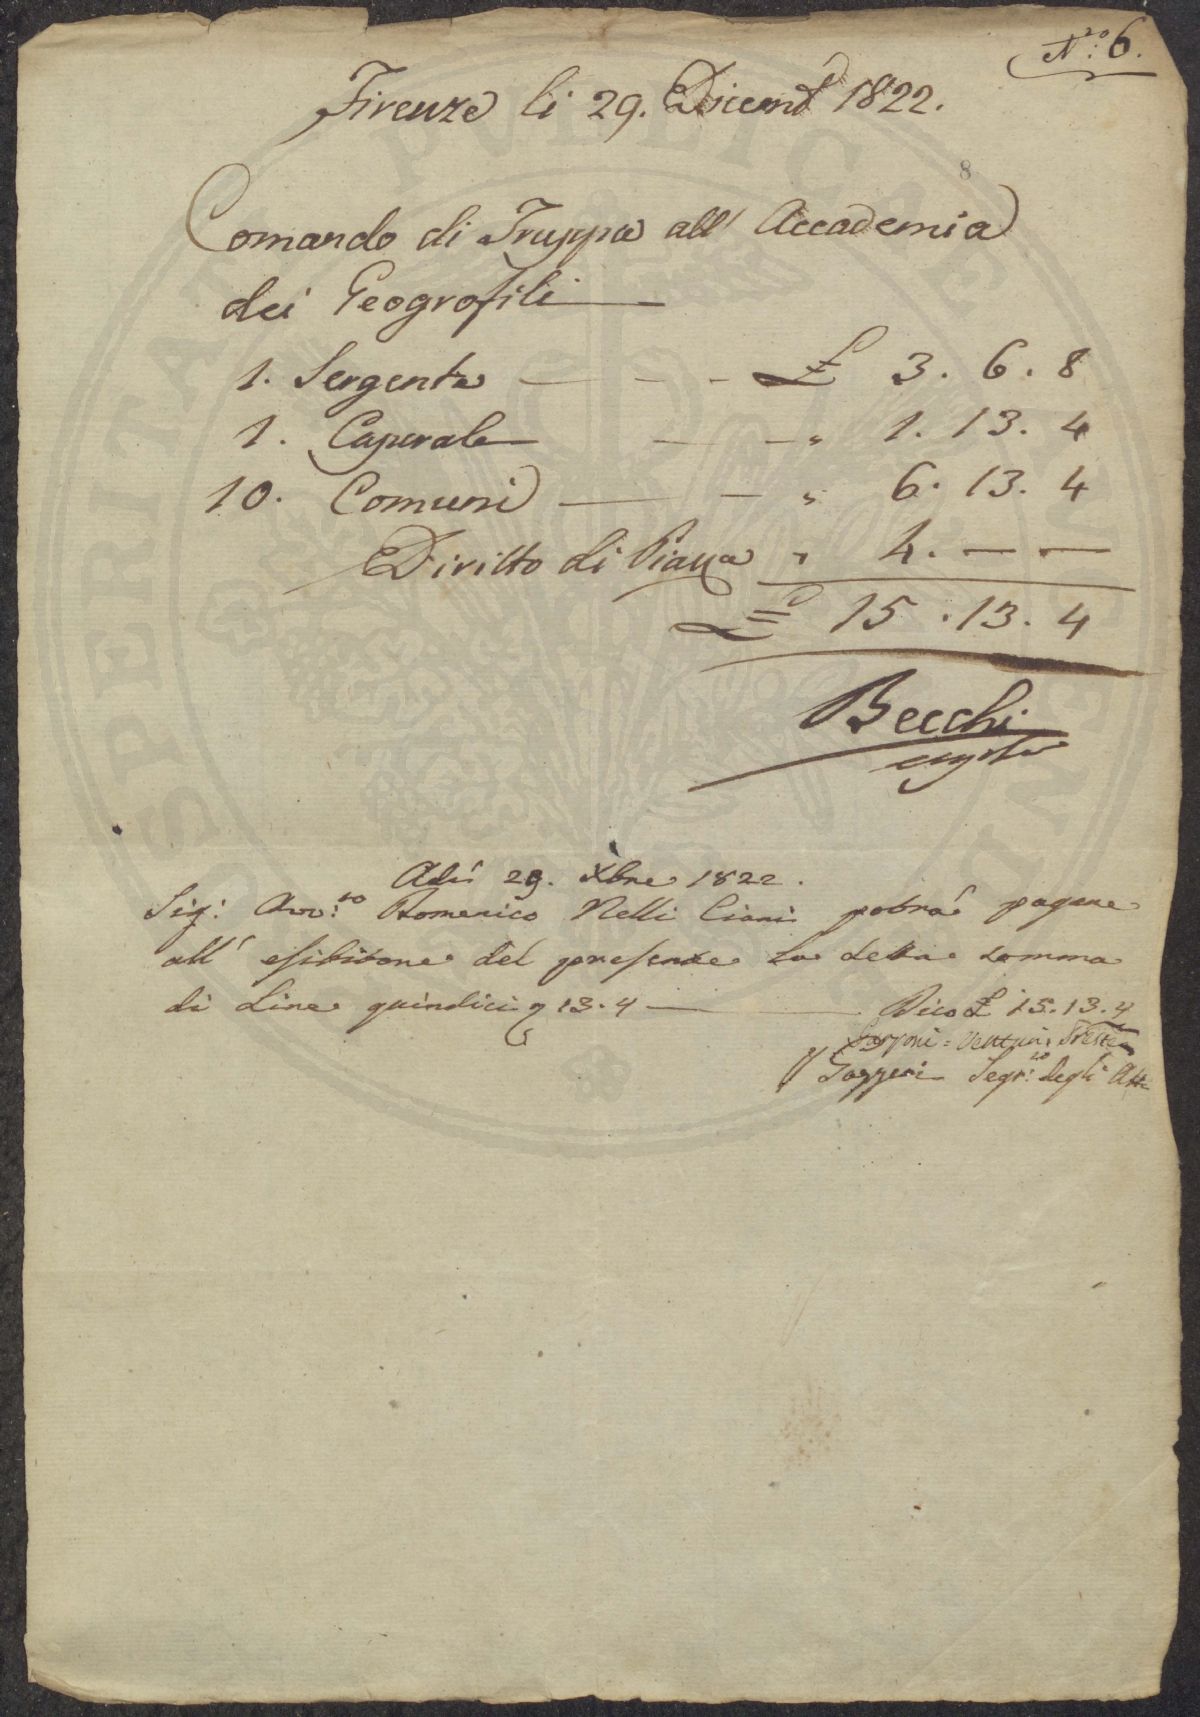 N.ro 6.
Firenze li 29. Dicemb 1822.
8
Comando di Truppa all' Accademia
dei Geogrofili
1. Sergente £ 3. 6. 8
1. Caporale " 1. 13. 4
10. Comuni " 6. 13. 4
Diritto di Piazza " 4. — —
£ 15. 13. 4
Becchi
Adì 29. Xbre 1822.
Sig: Avv:to Domenico Nelli Ciani potrà pagare
all' esibitore del presente la detta somma
di Lire quindici 13. 4 Dico £ 15. 13. 4
Venturi
Gazzeri Segr:io degli Atti
PVBLICAE
PROSPERITATI